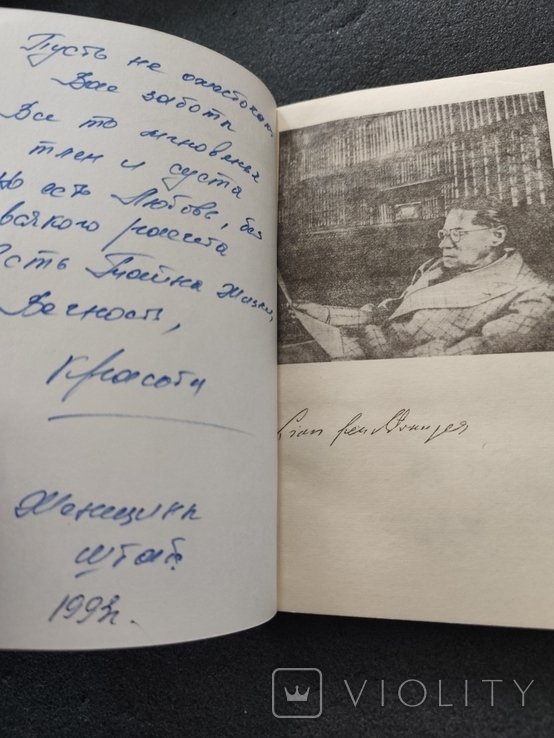 Пусть не ожесточат
Вас заботы
Все то мгновенья
тлен и суета
Но есть Любовь, без
всякого расчета
Есть Тайна Жизни,
Вечность,
Красота
Женщины
штаба
1993г.
VIOLITY